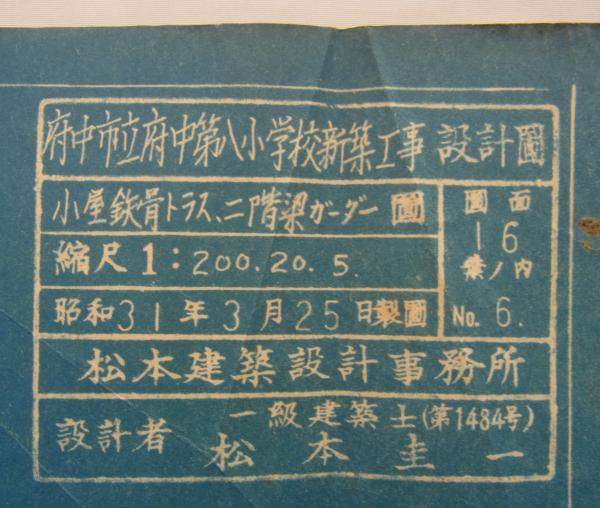 府中市立府中第八小学校新築工事設計圖
小屋鉄骨トラス、二階梁ガーダー圖
縮尺1:200.20.5.
昭和31年3月25日製圖
圖面
16
葉ノ内
No. 6.
松本建築設計事務所
設計者
一級建築士(第1484号)
松本圭一